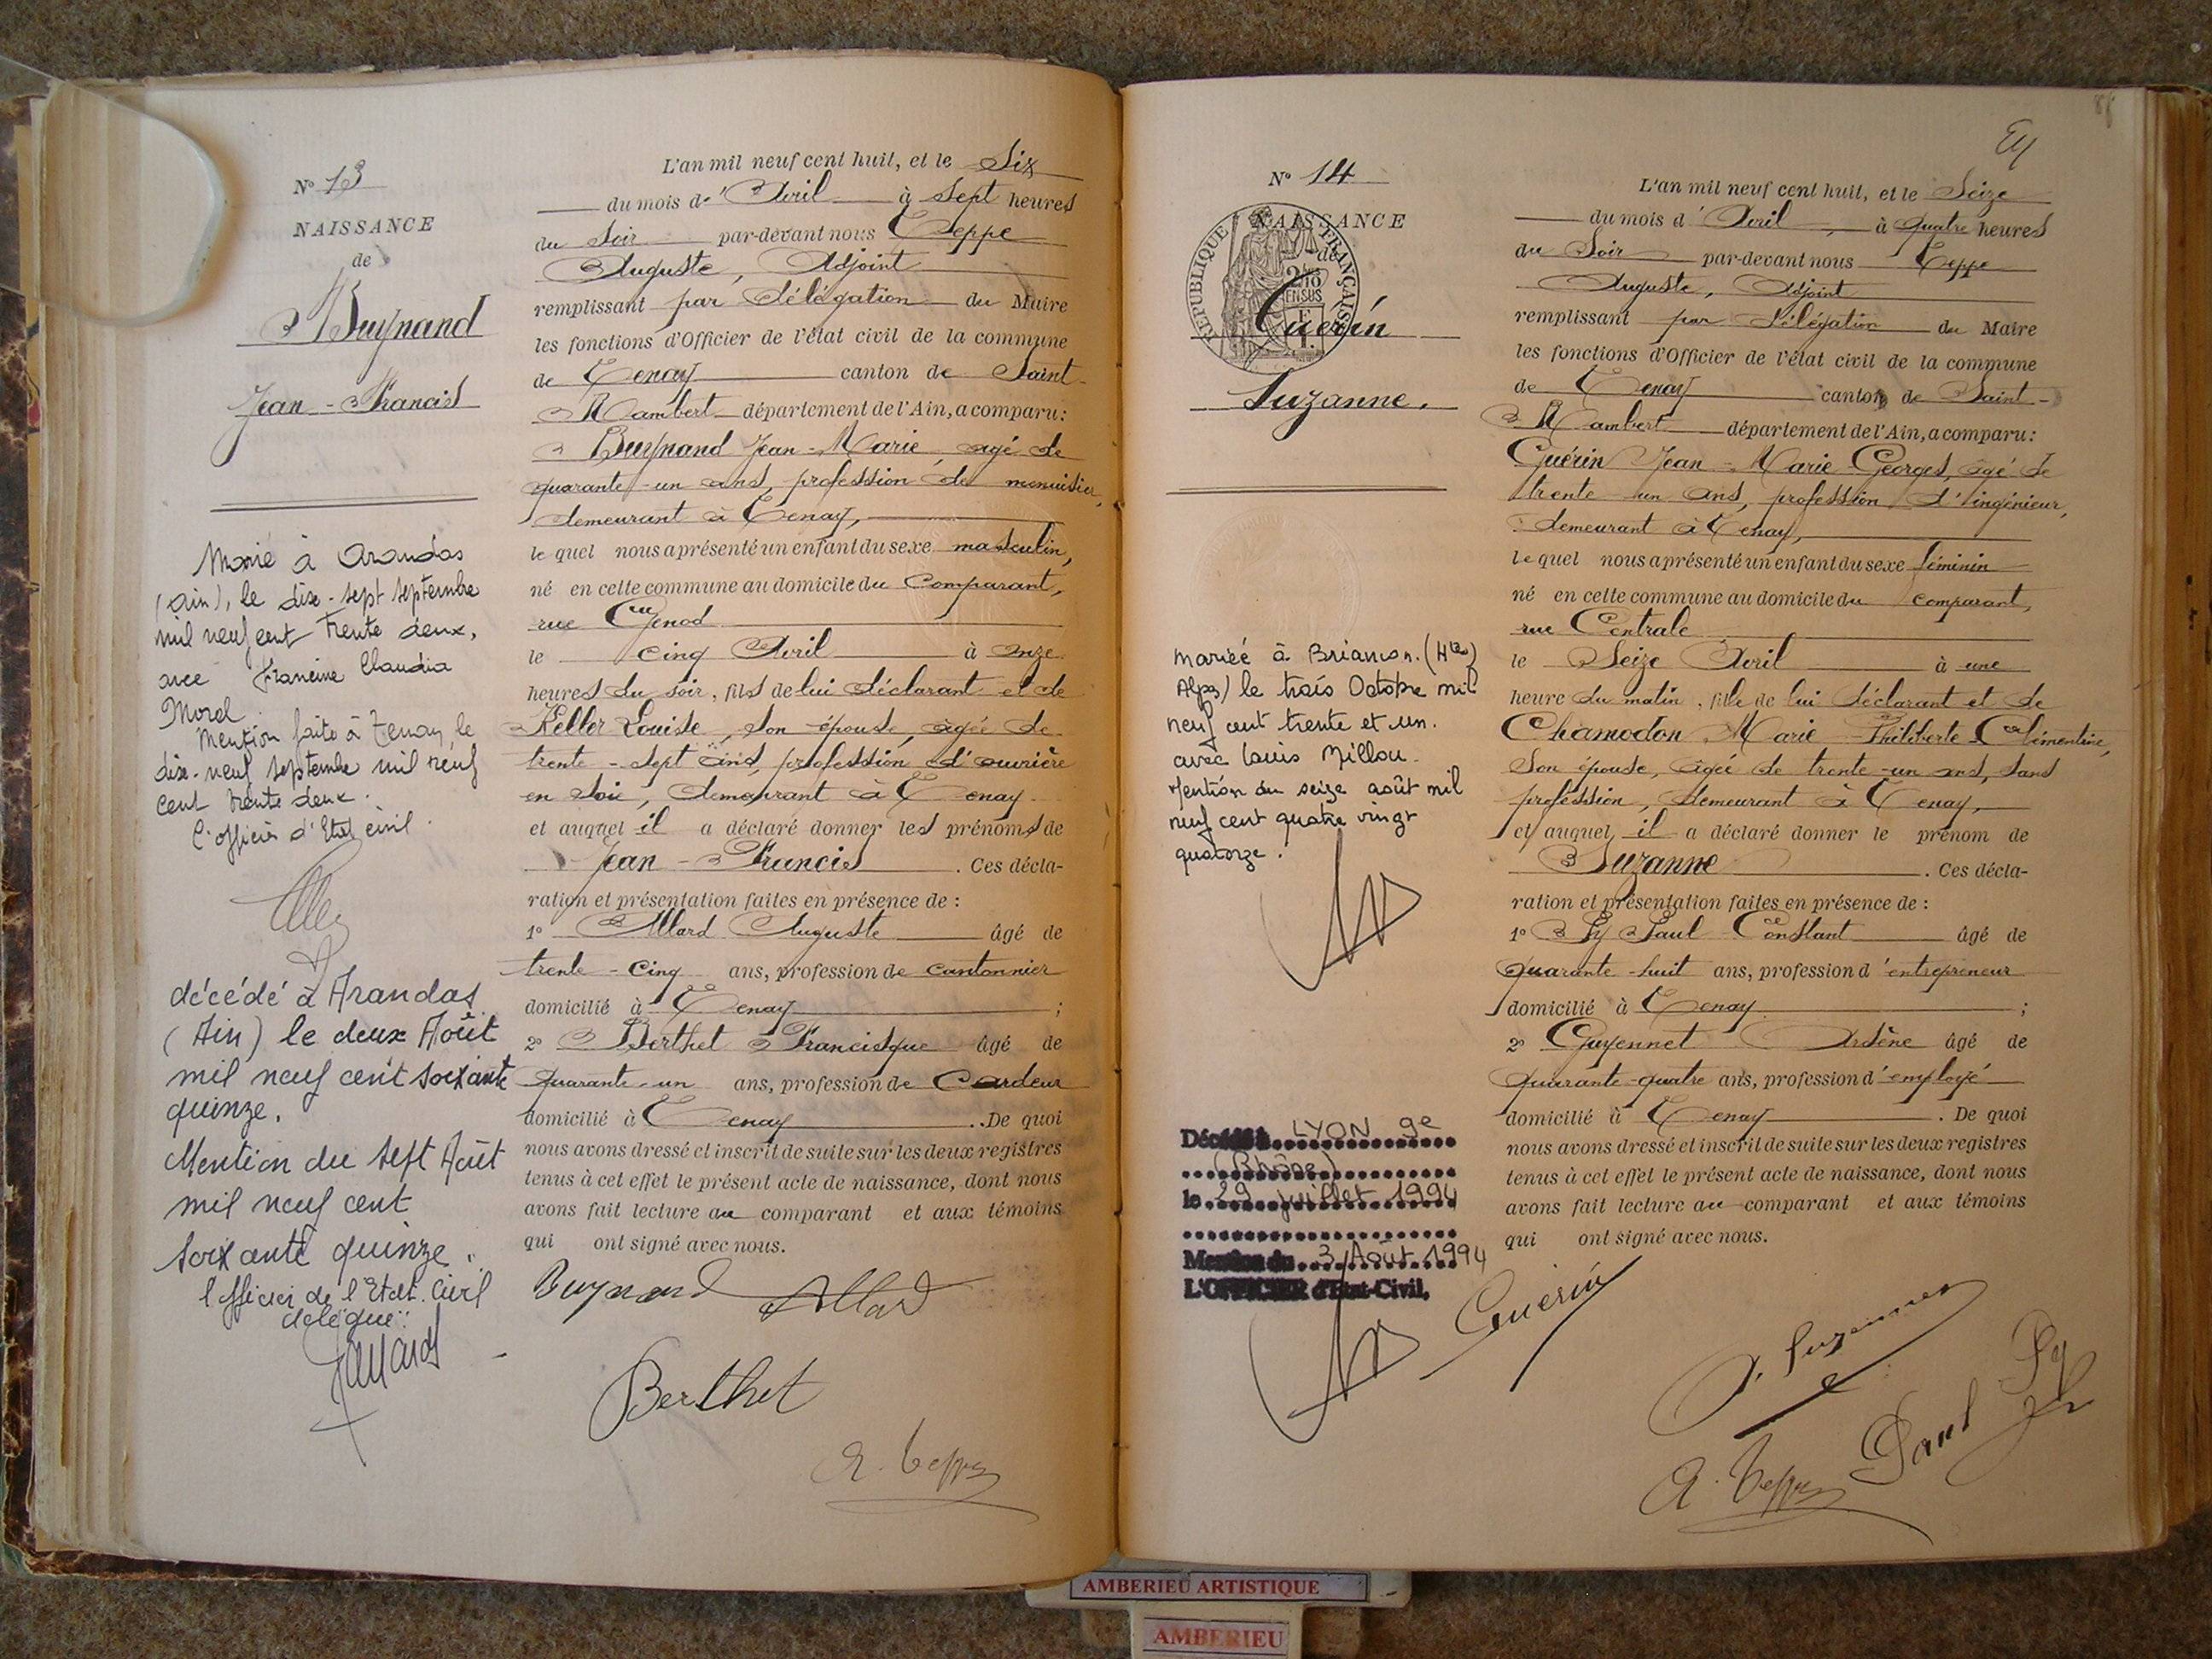 N° 13
NAISSANCE
de
Buynand
Jean-Francis
Marié à Arandas
(Ain), le dix-sept septembre
mil neuf cent trente deux,
avec Francine Claudia
Morel
Mention faite à Tenay, le
dix-neuf septembre mil neuf
cent trente deux.
l'officier d'Etat civil.
décédé à Arandas
(Ain) le deux Août
mil neuf cent soixante
quinze.
Mention du sept Août
mil neuf cent
soixante quinze.
l'officier de l'Etat Civil
délégué:
L'an mil neuf cent huit, et le Six
du mois d'Avril à sept heures
du Soir par-devant nous Teppe
Auguste, Adjoint
remplissant par délégation du Maire
les fonctions d'Officier de l'état civil de la commune
de Tenay canton de Saint-
Rambert département de l'Ain, a comparu:
Buynand Jean-Marie, agé de
quarante-un ans, profession de menuisier,
demeurant à Tenay,
lequel nous a présenté un enfant du sexe masculin,
né en cette commune au domicile du Comparant,
rue Genod
le cinq Avril à onze
heures du soir, fils de lui déclarant et de
Keller Louise, son épouse, agée de
trente-sept ans, profession d'ouvrière
en soie, demeurant à Tenay
et auquel il a déclaré donner les prénoms de
Jean-Francis. Ces décla-
ration et présentation faites en présence de:
1° Allard Auguste âgé de
trente-cinq ans, profession de cantonnier
domicilié à Tenay;
2° Berthet Francisque âgé de
Quarante-un ans, profession de Cardeur
domicilié à Tenay. De quoi
nous avons dressé et inscrit de suite sur les deux registres
tenus à cet effet le présent acte de naissance, dont nous
avons fait lecture au comparant et aux témoins
qui ont signé avec nous.
Buynand Allard
Berthet
A. Teppe
88
N° 14
NAISSANCE
de
REPUBLIQUE FRANÇAISE
Guérin
Suzanne.
Mariée à Briançon (Htes
Alpes) le trois Octobre mil
neuf cent trente et un.
avec Louis Millou.
Mention du seize août mil
neuf cent quatre vingt
quatorze.
Décédée à LYON 9e
(Rhône)
le 29 juillet 1994
Mention du 3 Août 1994
L'OFFICIER d'Etat-Civil,
L'an mil neuf cent huit, et le Seize
du mois d'Avril, à quatre heures
du Soir par-devant nous Teppe
Auguste, Adjoint
remplissant par délégation du Maire
les fonctions d'Officier de l'état civil de la commune
de Tenay canton de Saint-
Rambert département de l'Ain, a comparu:
Guérin Jean-Marie Georges, âgé de
trente un ans, profession d'ingénieur,
demeurant à Tenay,
lequel nous a présenté un enfant du sexe féminin
né en cette commune au domicile du comparant,
rue Centrale
le Seize Avril à une
heure du matin, fille de lui déclarant et de
Chamodon Marie Philiberte Clémentine,
Son épouse, âgée de trente-un ans, sans
profession, demeurant à Tenay,
et auquel il a déclaré donner le prénom de
Suzanne. Ces décla-
ration et présentation faites en présence de:
1° Py Paul Constant âgé de
Quarante-huit ans, profession d'entrepreneur
domicilié à Tenay;
2° Guyennet Arsène âgé de
Quarante-quatre ans, profession d'employé
domicilié à Tenay. De quoi
nous avons dressé et inscrit de suite sur les deux registres
tenus à cet effet le présent acte de naissance, dont nous
avons fait lecture au comparant et aux témoins
qui ont signé avec nous.
Guérin
Paul Py
A. Teppe
AMBERIEU ARTISTIQUE
AMBERIEU